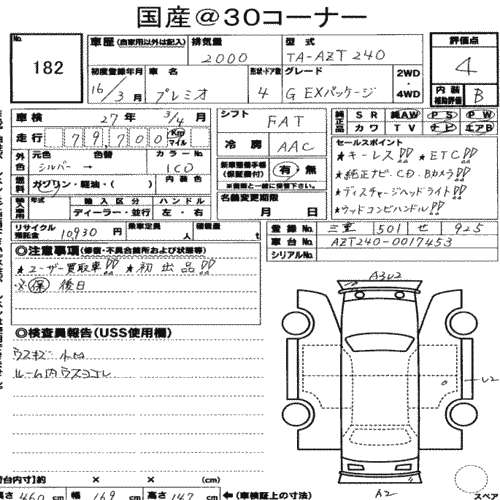 国産@30コーナー
No. 182
車歴 (自家用以外は記入) 排気量 2000 型式 TA-AZT240
評価点 4
初度登録年月 16/3月 車名 プレミオ 形状・ドア数 4 グレード G EXパッケージ 2WD・4WD
内装補助評価 B
車検 27年 3/4月 シフト FAT
純正品 SR 純AW PS PW
カワ TV ナビ エアB
走行 79,700 Km マイル 冷房 AAC
セールスポイント
外色 元色 シルバー→ 色替 カラーNo. 1C0 内色
新車整備手帳(保証書付) 有・無
※書類と一緒に後送して下さい
★キーレス!! ★ETC!!
★純正ナビ・CD・Bカメラ!!
★ディスチャージヘッドライト!!
★ウッドコンビハンドル!!
燃料 ガソリン・軽油・( )
輸入車 年式 輸入区分 ハンドル
ディーラー・並行 左・右
名義変更期限 月 日
リサイクル預託金 10930円 乗車定員 人 積載量 t
登録No. 三重 501 せ 925
車台No. AZT240-0017453
シリアルNo.
◎注意事項(修復・不具合箇所および状態等)
★ユーザー買取車!! ★初出品!!
※保 後日
◎検査員報告(USS使用欄)
ウスキズ 小凹
ルーム内ウスヨゴレ
A3U2
U2
A2
スペア
荷台内寸(約) × × (cm)
長さ 460 cm 幅 169 cm 高さ 147 cm ←(車検証上の寸法)